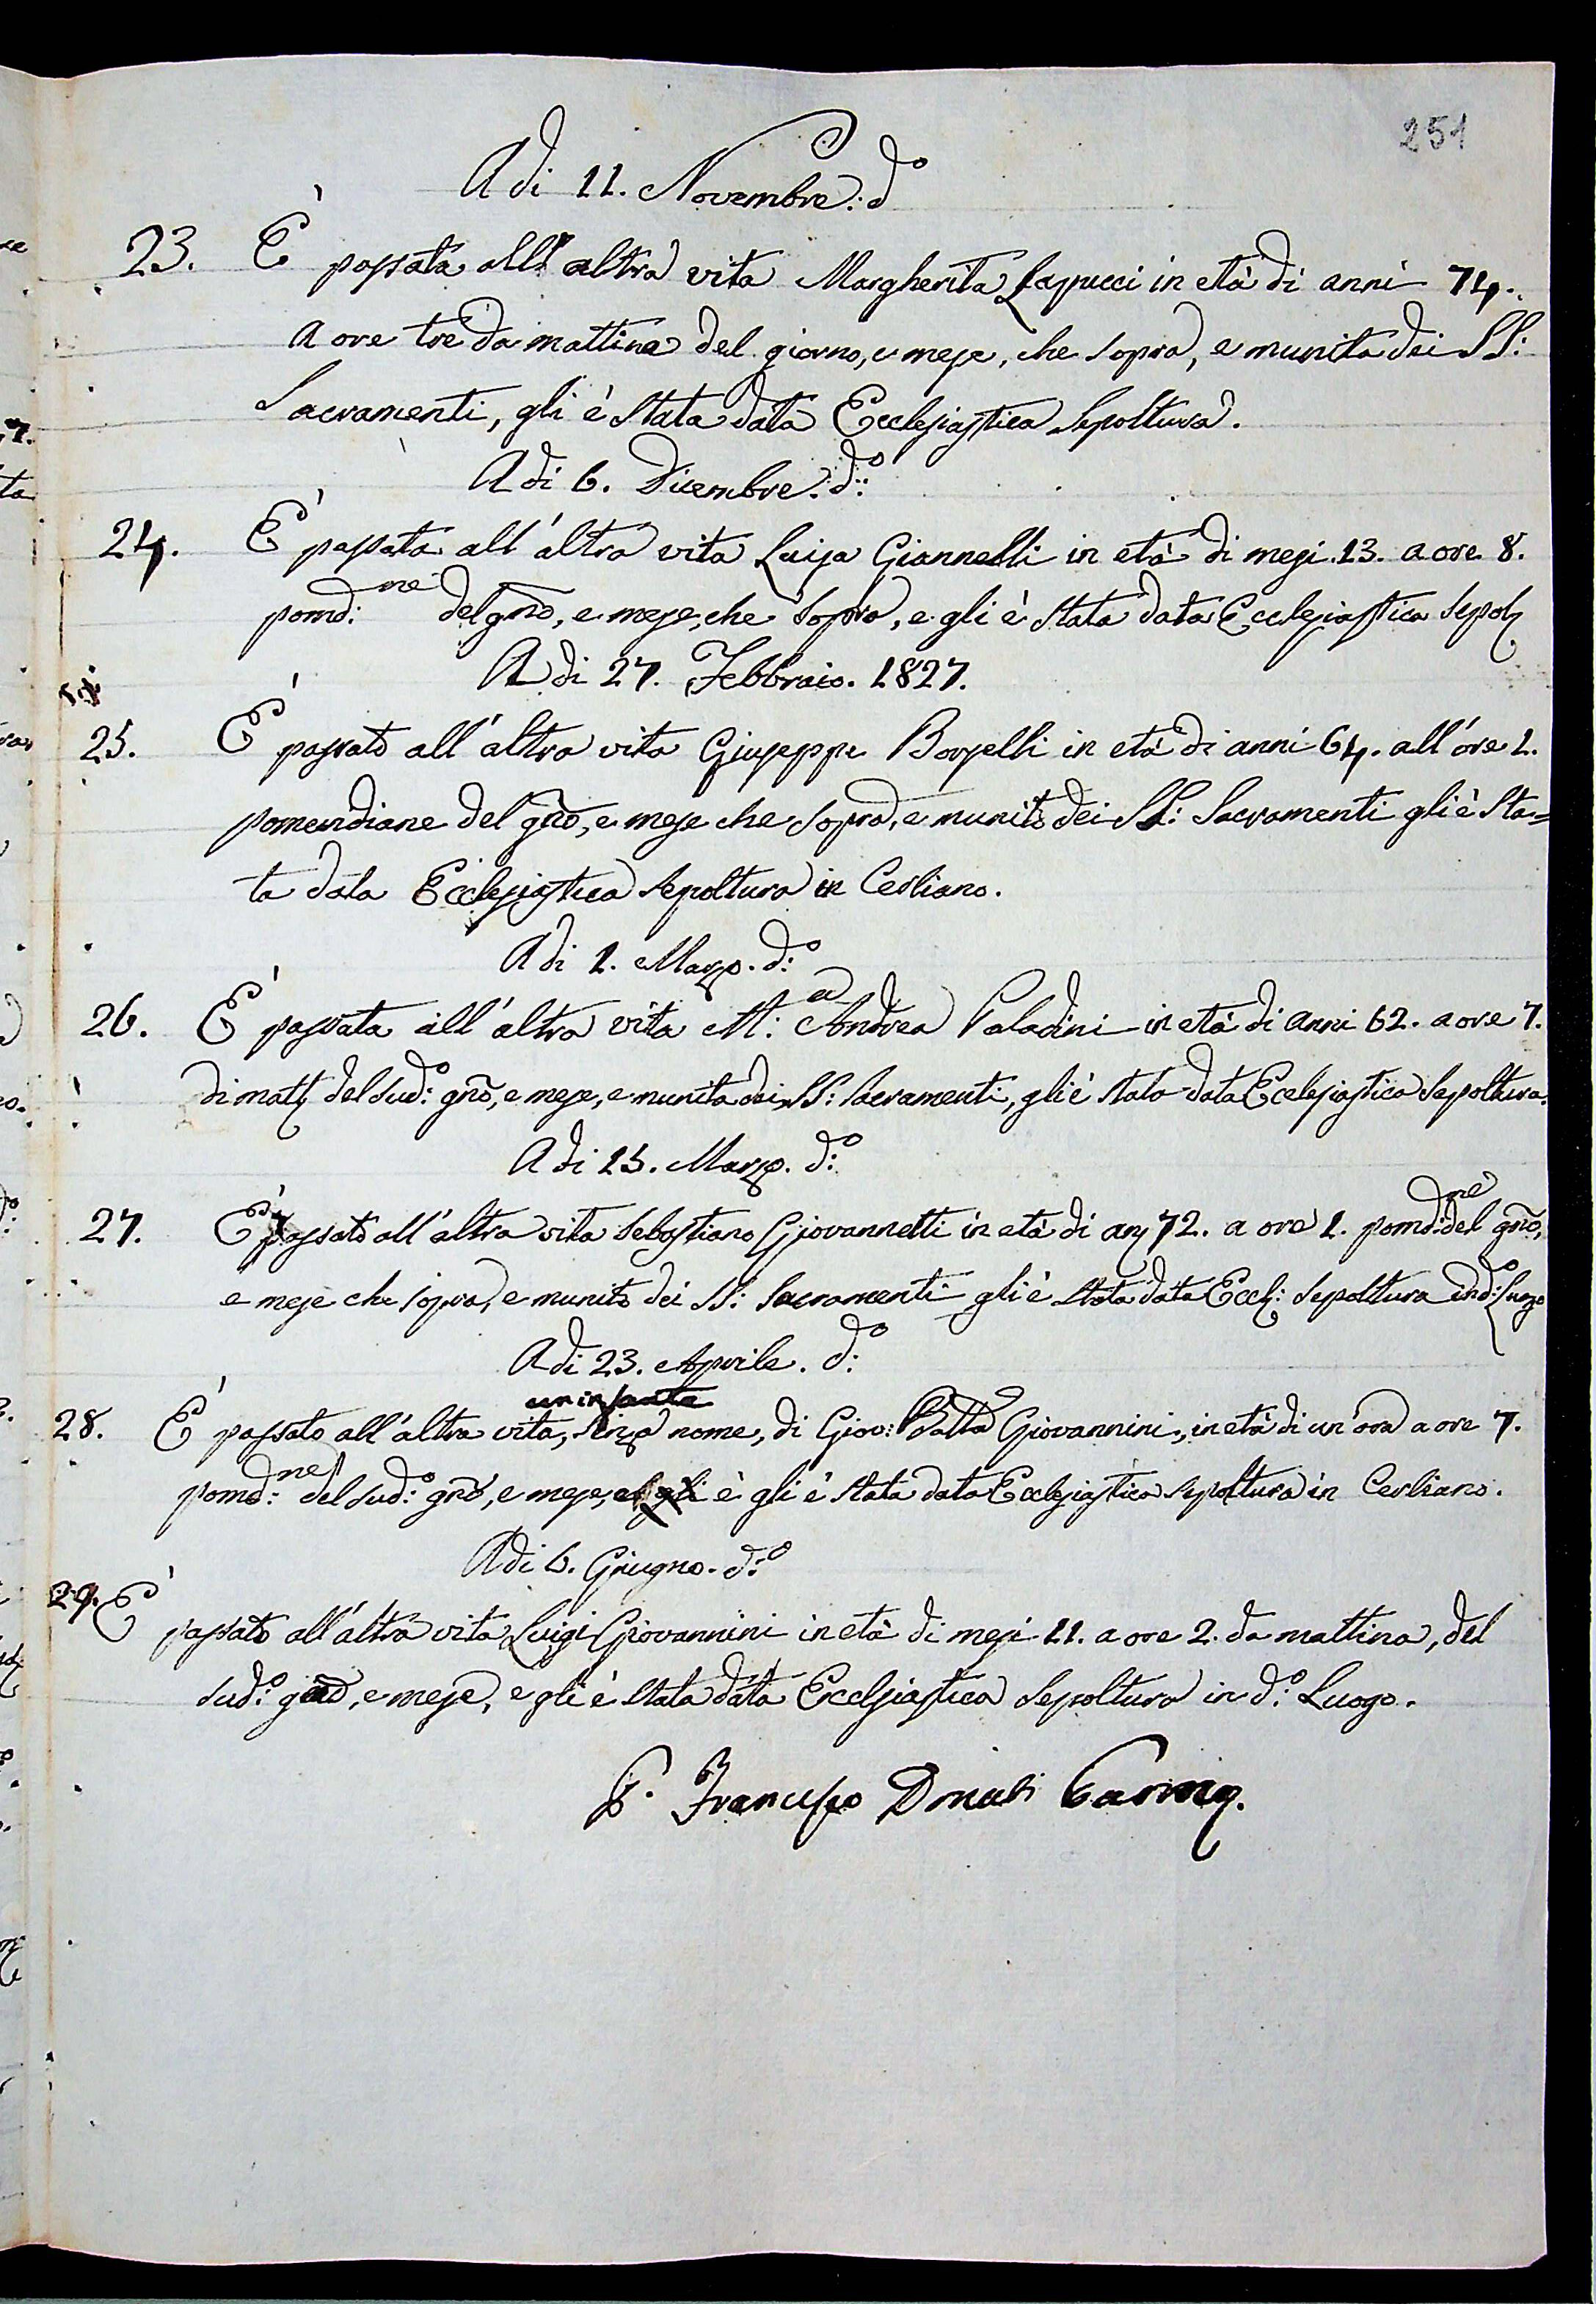 251
A di 11. Novembre. d.o
23. È passata all'altra vita Margherita Lapucci in età di anni 74.
a ore tre da mattina del giorno, e mese, che sopra, e munita dei SS:
Sacramenti, gli è stata data Ecclesiastica Sepoltura.
A di 6. Dicembre. d:o
24. È passata all'altra vita Luisa Giannelli in età di mesi 13. a ore 8.
pomd:ne del gño, e mese, che sopra, e gli è stata data Ecclesiastica Sepol
A di 27. Febbraio. 1827.
25. È passato all'altra vita Giuseppe Borselli in età di anni 64. all'ore 1.
pomeridiane del gño, e mese che sopra, e munito dei SS: Sacramenti gli è sta=
ta data Ecclesiastica Sepoltura in Cerliano.
A di 1. Marzo. d:o
26. È passata all'altra vita M:a Andrea Paladini in età di anni 62. a ore 7.
di matt del sud:o gño, e mese, e munita dei SS: Sacramenti, gli è stata data Ecclesiastica Sepoltura.
A di 15. Marzo. d:o
27. È passato all'altra vita Sebastiano Giovannetti in età di an 72. a ore 1. pomd:ne del gño,
e mese che sopra, e munito dei SS: Sacramenti gli è stata data Eccl: Sepoltura in d:o Luogo
A di 23. Aprile. d:o
un infante
28. È passato all'altra vita, senza nome, di Giov: Batta Giovannini, in età di un'ora a ore 7.
pomd:ne del sud:o gño, e mese, e gli è gli è stata data Ecclesiastica Sepoltura in Cerliano.
A di 6. Giugno. d:o
29. È passato all'altra vita Luigi Giovannini in età di mesi 11. a ore 2. da mattina, del
sud:o gño, e mese, e gli è stata data Ecclesiastica Sepoltura in d:o Luogo.
P. Francesco Donati